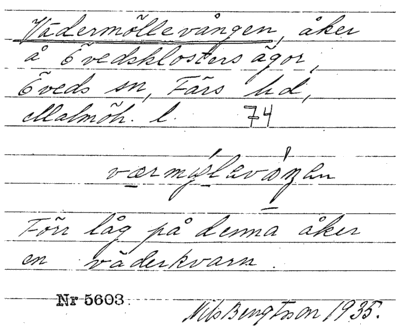 Vädermöllevången, åker
å Övedsklosters ägor,
Öveds sn, Färs hd,
Malmöh. l. 74
Förr låg på denna åker
en väderkvarn.
Nr 5603
Nils Bengtsson 1935.